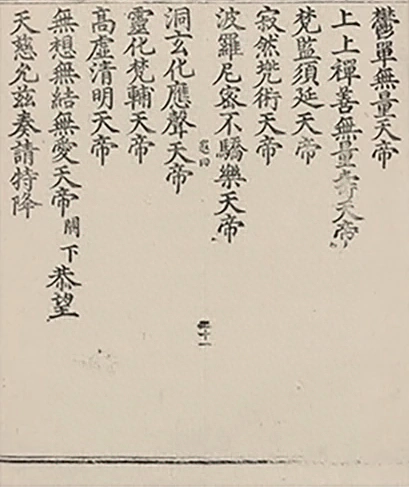 鬱單無量天帝
上上禪善無量壽天帝
梵監須延天帝
寂然兠術天帝
波羅尼宻不驕樂天帝
洞玄化應聲天帝
靈化梵輔天帝
高虛清明天帝
無想無結無愛天帝 閣下恭望
天慈允兹奏請特降